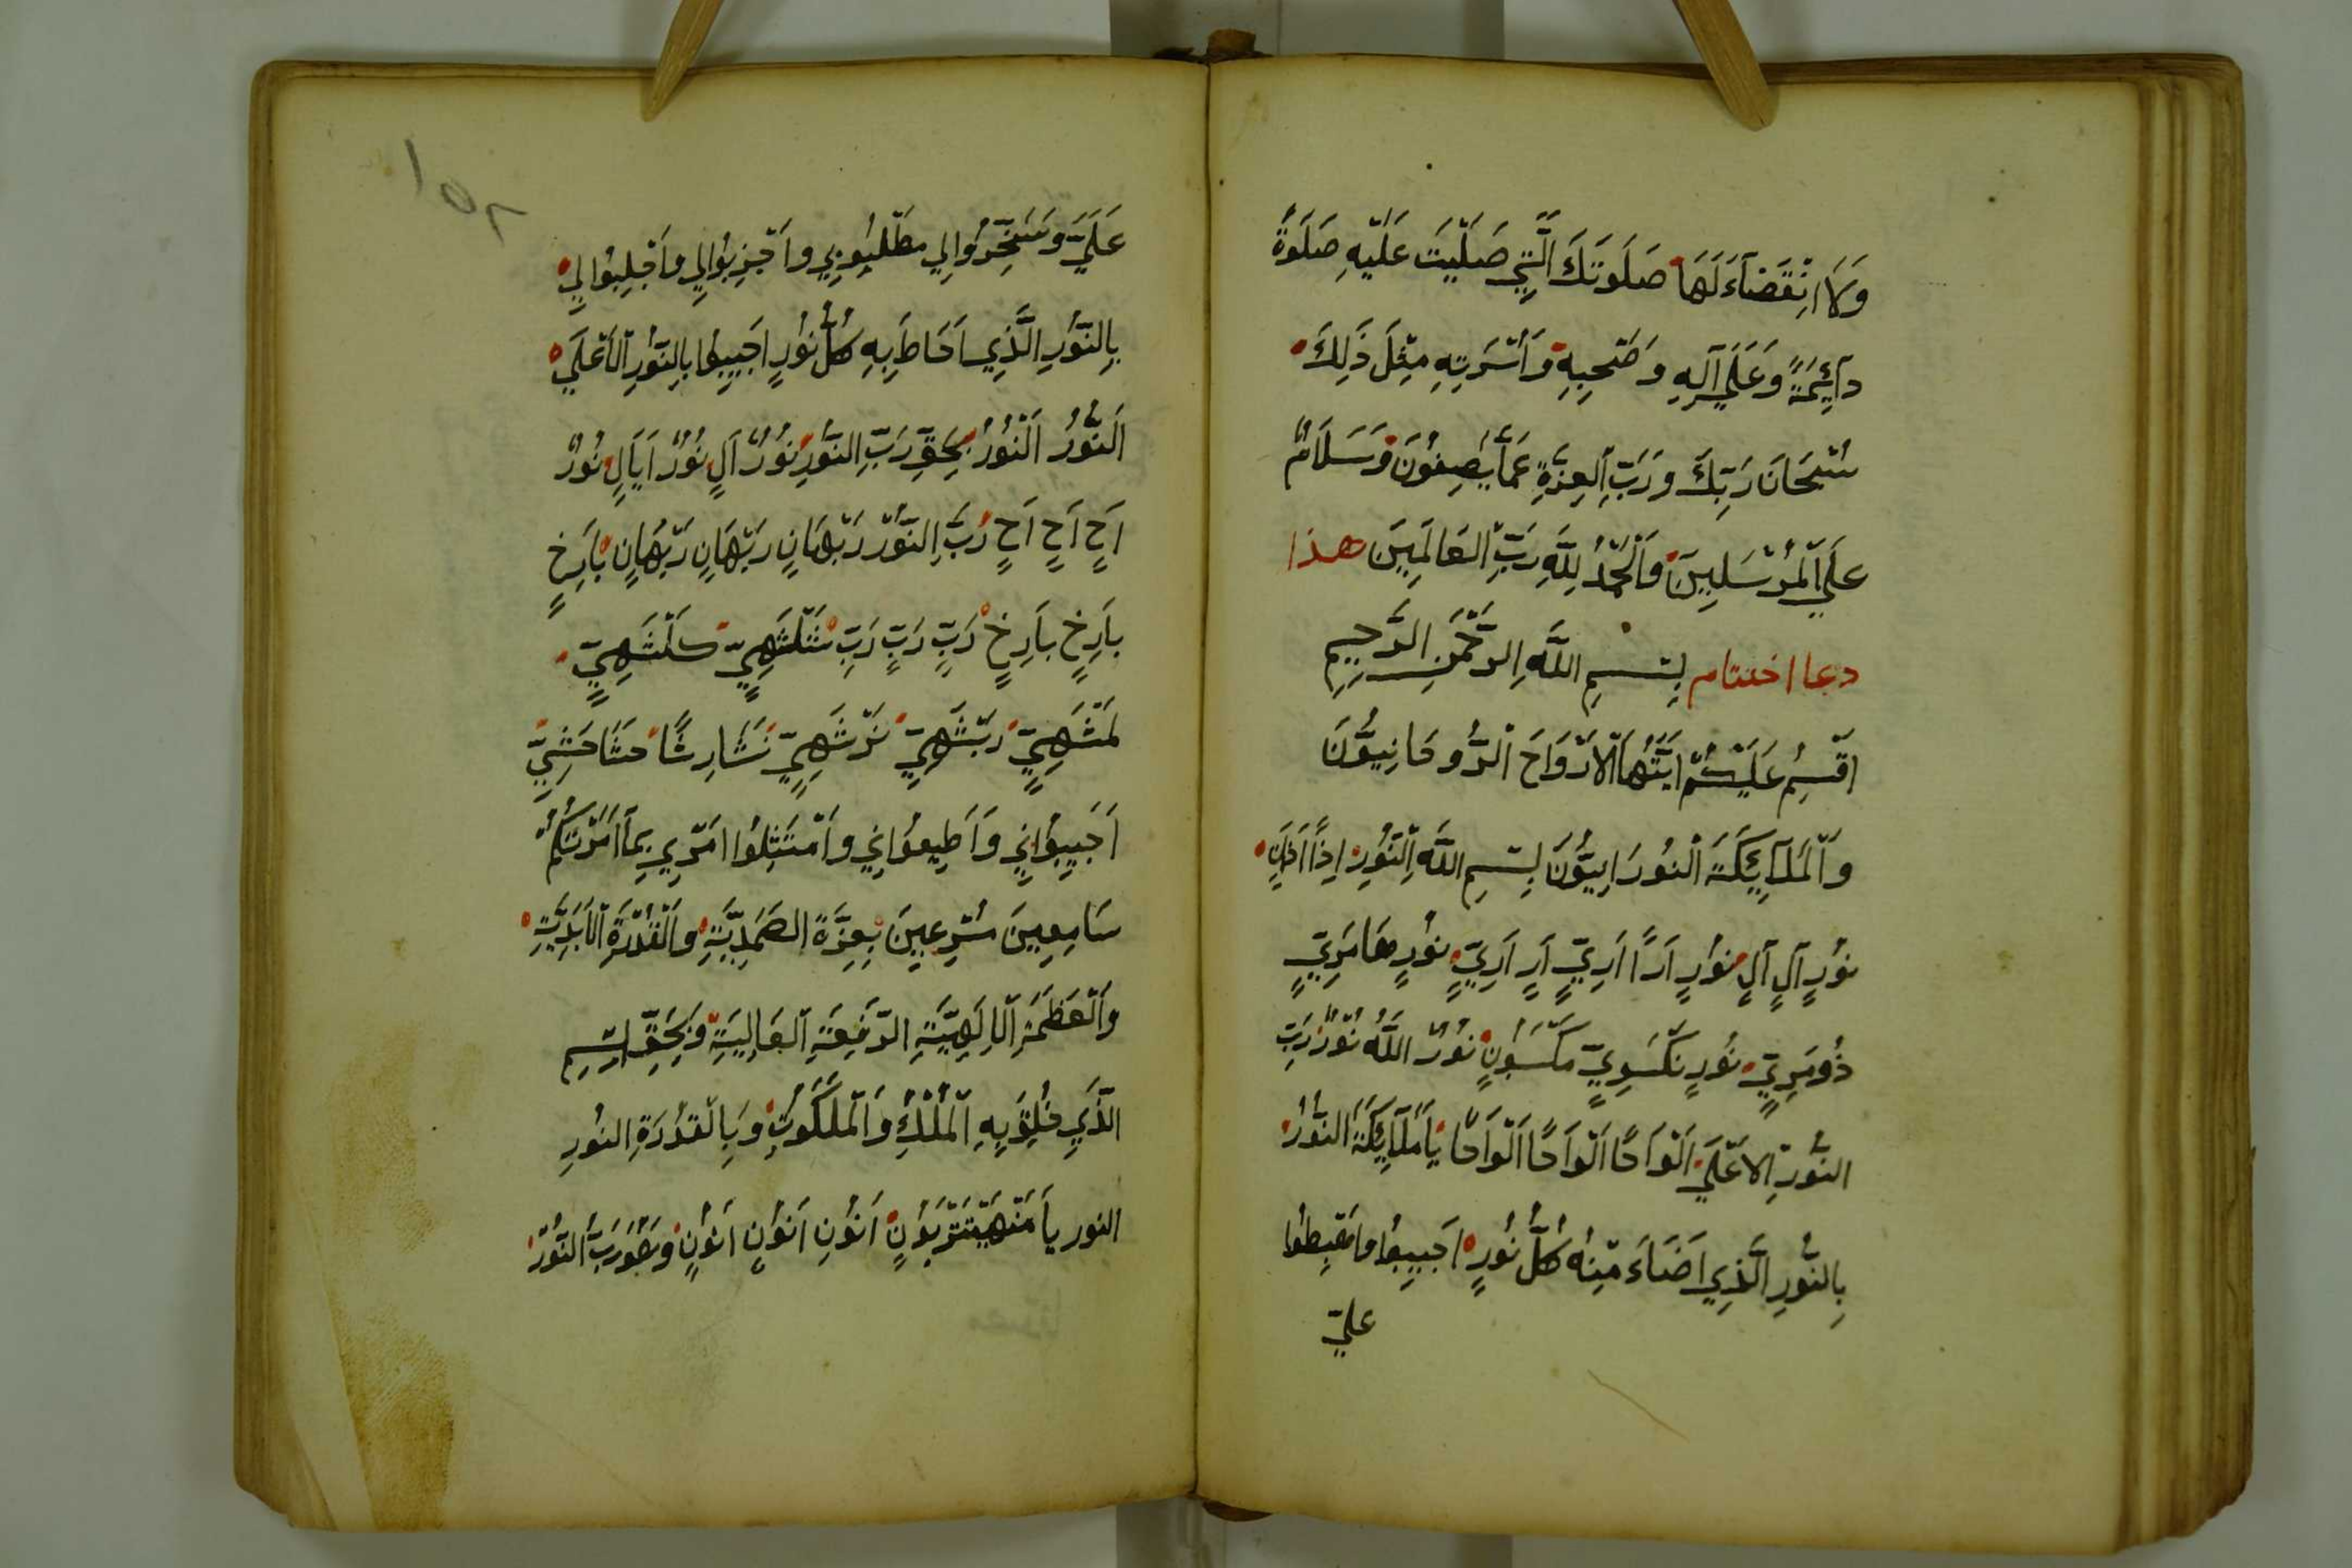 وَلَا انْقِضَآءَ لَهَا صَلَوتَكَ الَّتِي صَلَّيْتَ عَلَيْهِ صَلَوةً
دَآئِمَةً وَعَلَي آلِهِ وَصَحْبِهِ وَاُسْرَتِهِ مِثْلَ ذَلِكَ
سُبْحَانَ رَبِّكَ وَرَبِّ الْعِزَّةِ عَمَّا يَصِفُونَ وَسَلَامٌ
عَلَي الْمُرْسَلِينَ وَالْحَمْدُ لِلَّهِ رَبِّ الْعَالَمِينَ هذا
دعا اختتام بِسْمِ اللَّهِ الرَّحْمَنِ الرَّحِيمِ
اَقْسِمُ عَلَيْكُمْ اَيَّتُهَا الْاَرْوَاحَ الرُّوحَانِيُّونَ
وَالْمَلَآئِكَةَ النُورَانِيُّونَ بِسْمِ اللَّهِ النُّورِ اِذًا اَذَانٍ
نُورٍ آلٍ آلٍ نُورٍ اَرًا اَرِيٍّ اَرٍ اَرِيٍّ نُورٍ هَامَرِيٍّ
ذُومَرِيٍّ نُورٍ نَكْسَوِيٍّ مَكْسَوُنٍ نُورٌ اللَّهُ نُورٌ رَبِّ
النُّورِ الاَعْلَي اَلْوَاحًا اَلْوَاحًا اَلْوَاحًا يَا مَلَآئِكَةَ النُّورُ
بِالنُّورِ الَّذِي اَضَاءَ مِنْهُ كُلُّ نُورٍ اَجِيبُوا وَاهْبِطُوا
عليّ
١٥٢
عَلَيَّ وَسَخِّرُوا لِي مَطْلُوبِي وَاَجْزِبُوا لِي وَاَجْلِبُوا لِي
بِالنُّورِ الَّذِي اَحَاطَ بِهِ كُلُّ نُورٍ اَجِيبُوا بِالنُّورِ الْاَعْلَي
اَلنُّورُ اَلنُّورُ بِحَقِّ رَبِّ النُّورِ نُورٌ آلٍ نُورٌ اَيَالٍ نُورٌ
اَحٍ اَحٍ اَحٍ رَبَّ النُّورْ رَبْهَانٍ رَبْهَانٍ رَبْهَانٍ بَارِخٍ
بَارِخٍ بَارِخٍ رَبٍّ رَبٍّ رَبِّ شَلْشَهِيٍّ كَلْشَهِيٍّ
لَمْشَهِيٍّ رَبْشَهِيٍّ نَرْشَهِيٍّ نَشَارِشًا حَشَا حَشِيٍّ
اَجِيبُوانِي وَاَطِيعُوانِي وَاَمْتَثِلُوا اَمْرِي بِمَا اَمَرْتُكُمْ
سَامِعِينَ مُسْرِعِينَ بِعِزَّةَ الصَّمَدِيَّةِ وَالْقُدْرَةِ الْاَبَدِيَّةِ
وَالْعَظَمَةِ الْاِلَهِيَّةِ الرَّفِيعَةِ الْعَالِيَةِ وَبِحَقِّ اِسْمِ
الَّذِي خُلِقَ بِهِ الْمُلْكُ وَالْمَلَكُوتُ وَبِالْقُدْرَةِ النُورِ
النور يَا مَنْهَيْتَرْبَوُنٍ اَنُونِ اَنُونٍ اَنُونٍ وَهُوَ رَبُّ النُّورُ